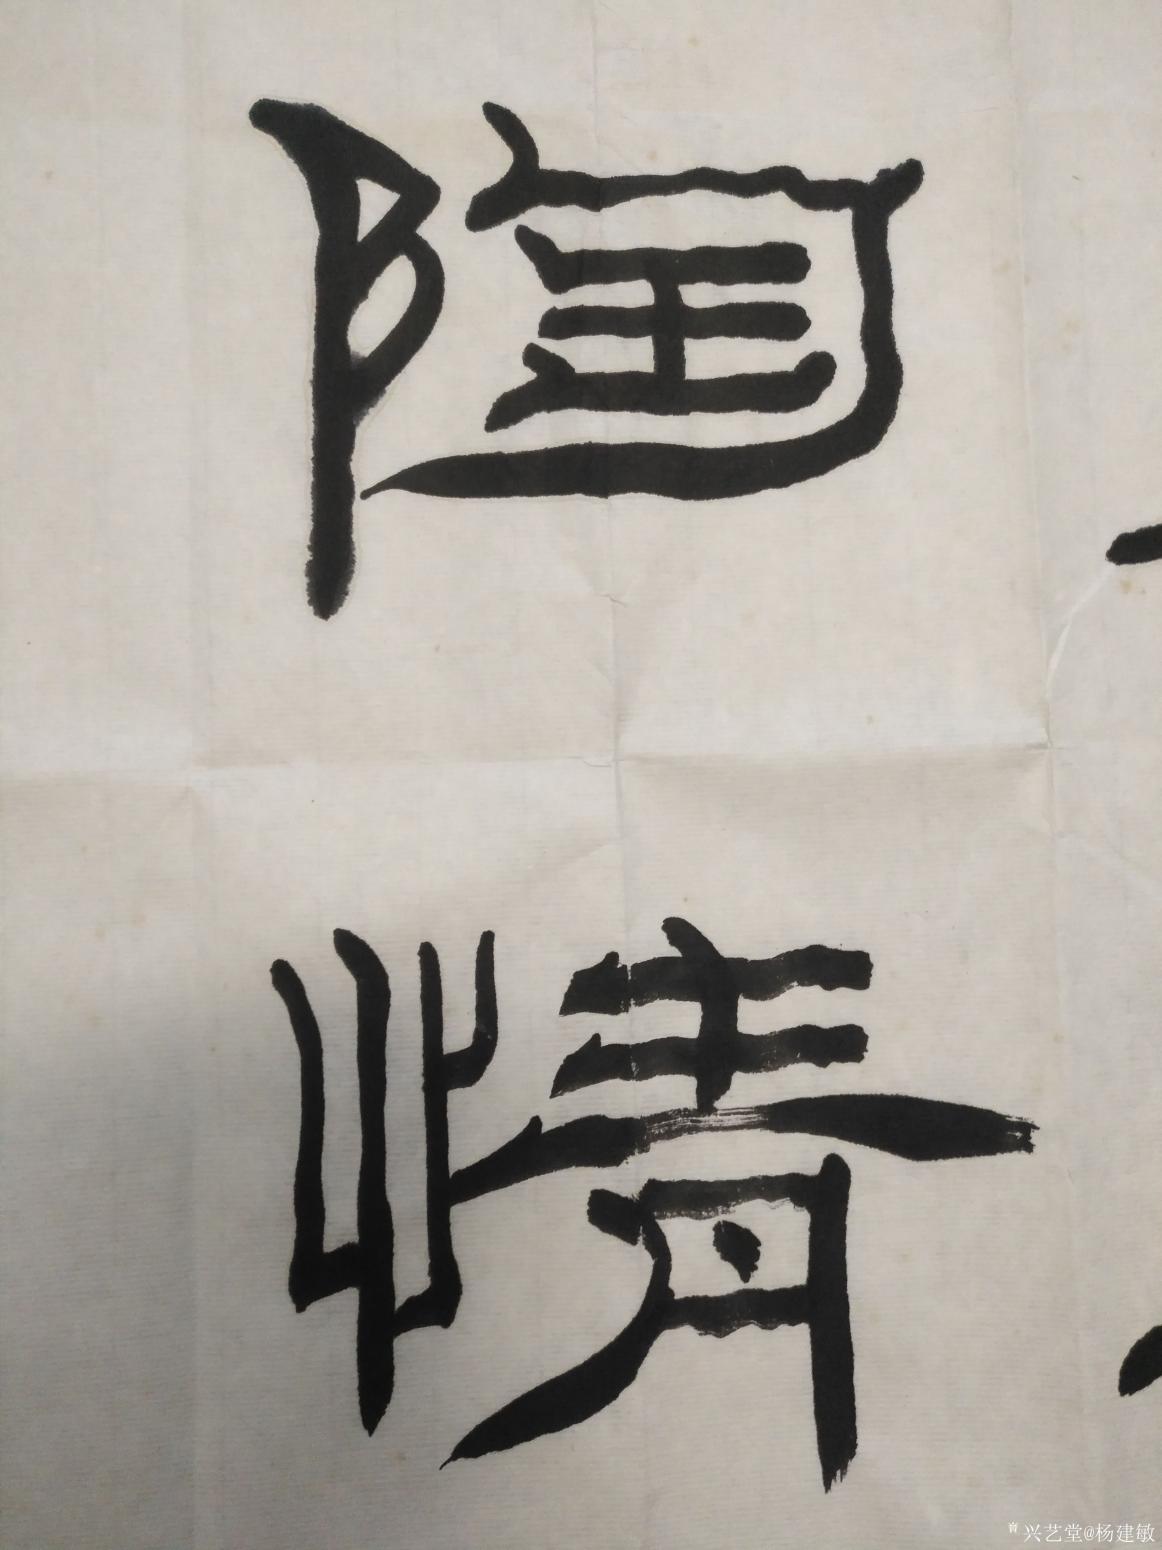 陶
情
兴艺堂@杨建敏